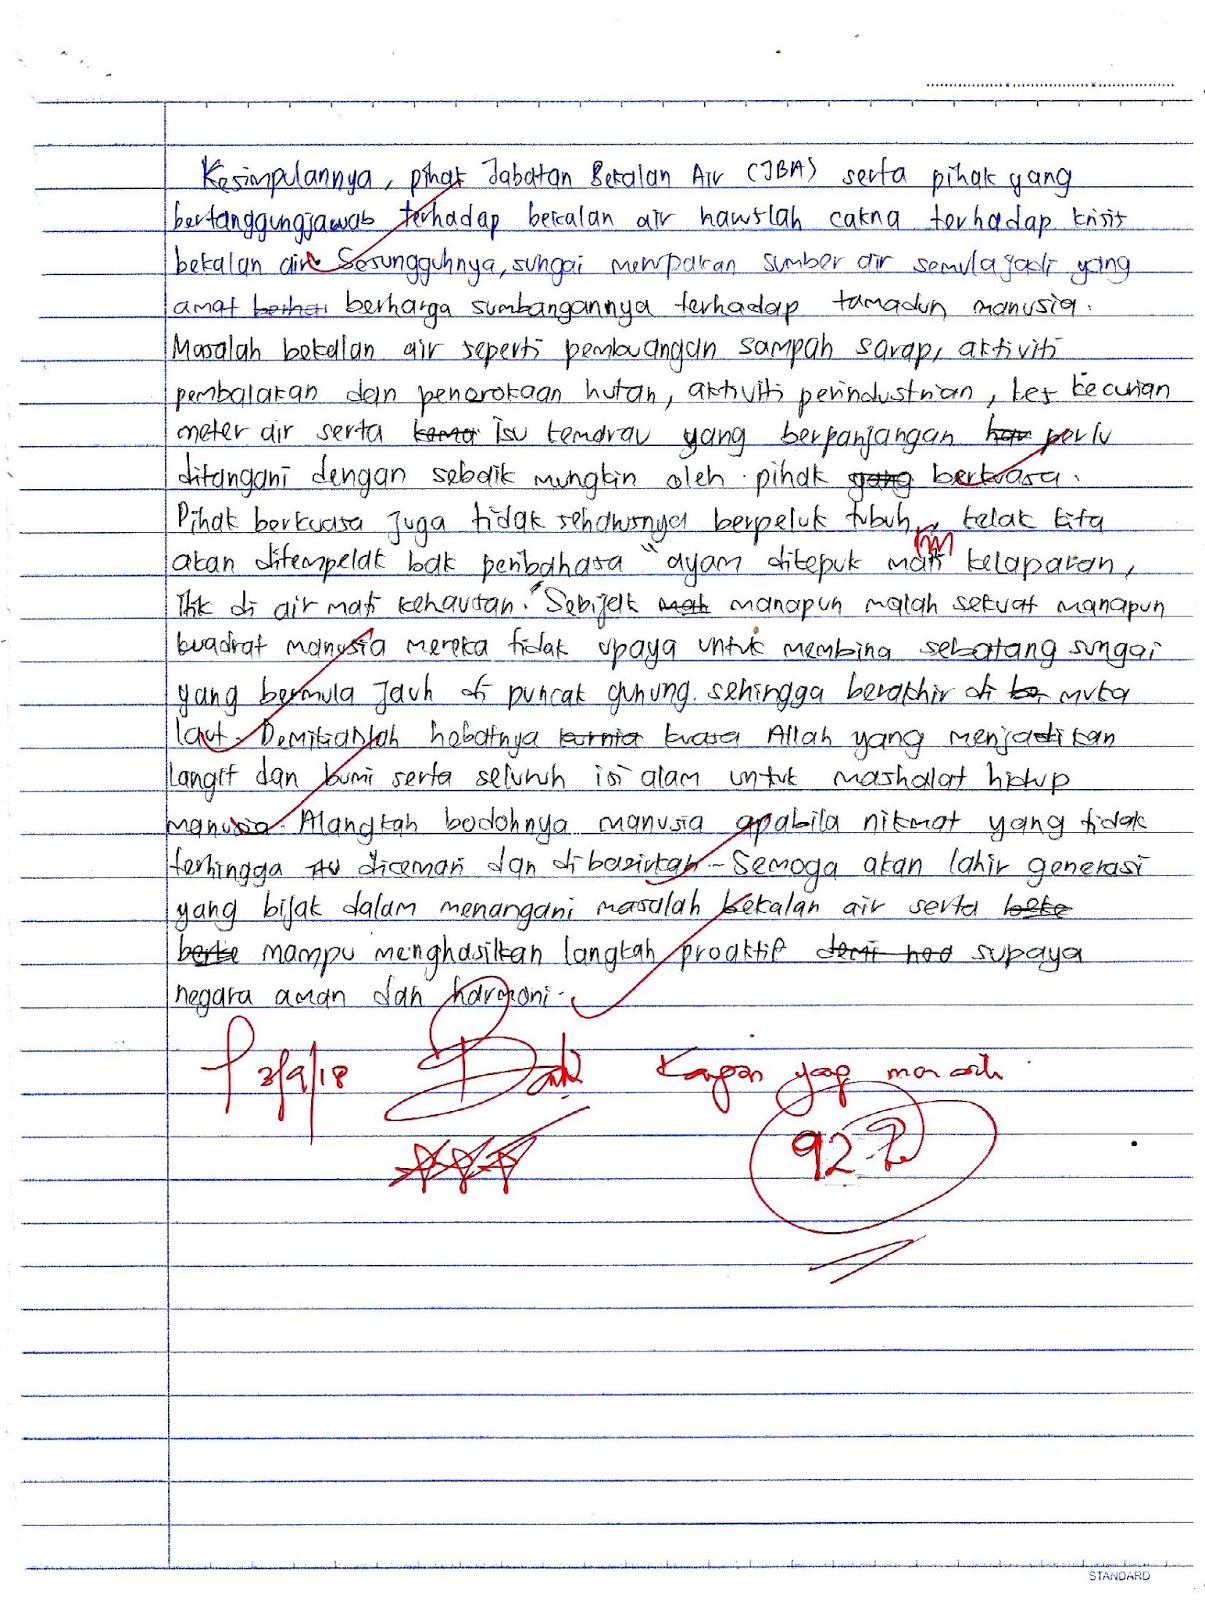 Kesimpulannya, pihak Jabatan Bekalan Air (JBA) serta pihak yang
bertanggungjawab terhadap bekalan air haruslah cakna terhadap krisis
bekalan air. Sesungguhnya, sungai merupakan sumber air semulajadi yang
amat berharga sumbangannya terhadap tamadun manusia.
Masalah bekalan air seperti pembuangan sampah sarap, aktiviti
pembalakan dan penerokaan hutan, aktiviti perindustrian, kes kecurian
meter air serta isu kemarau yang berpanjangan perlu
ditangani dengan sebaik mungkin oleh pihak yang berkuasa.
Pihak berkuasa juga tidak seharusnya berpeluk tubuh, kelak kita
akan ditempelak bak peribahasa "ayam ditepuk mati kelaparan,
itik di air mati kehausan." Sebijak manapun malah sekuat manapun
kuadrat manusia mereka tidak upaya untuk membina sebatang sungai
yang bermula jauh di puncak gunung sehingga berakhir di muka
laut. Demikianlah hebatnya kurnia kuasa Allah yang menjadikan
langit dan bumi serta seluruh isi alam untuk mashalat hidup
manusia. Alangkah bodohnya manusia apabila nikmat yang tidak
terhingga itu dicemari dan dibazirkan. Semoga akan lahir generasi
yang bijak dalam menangani masalah bekalan air serta
mampu menghasilkan langkah proaktif supaya
negara aman dan harmoni.
3/9/18 Baik Karangan yang menarik
92
STANDARD